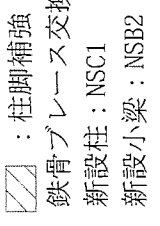 ：柱脚補強
鉄骨ブレース交換
新設柱：NSC1
新設小梁：NSB2